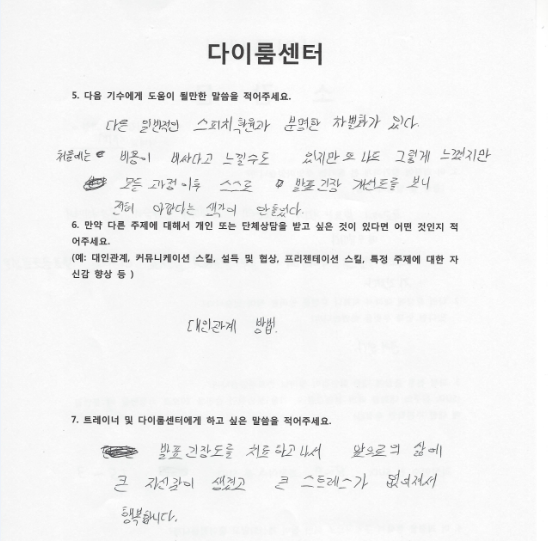 다이룸센터
5. 다음 기수에게 도움이 될만한 말씀을 적어주세요.
다른 일반적인 스피치학원과 분명한 차별화가 있다.
처음에는 비용이 비싸다고 느낄수도 있지만 또 나도 그렇게 느꼈지만
모든 과정 이후 스스로 발표긴장 개선도를 보니
전혀 아깝다는 생각이 안들었다.
6. 만약 다른 주제에 대해서 개인 또는 단체상담을 받고 싶은 것이 있다면 어떤 것인지 적
어주세요.
(예: 대인관계, 커뮤니케이션 스킬, 설득 및 협상, 프리젠테이션 스킬, 특정 주제에 대한 자
신감 향상 등 )
대인관계 방법.
7. 트레이너 및 다이룸센터에게 하고 싶은 말씀을 적어주세요.
발표긴장도를 치료하고나서 앞으로의 삶에
큰 자신감이 생겼고 큰 스트레스가 없어져서
행복합니다.